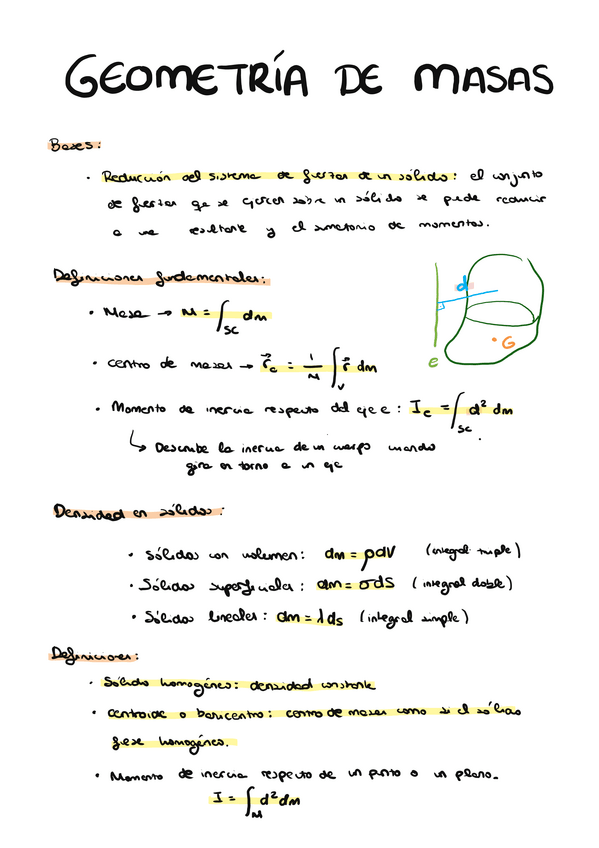 GEOMETRÍA DE MASAS
Bases:
· Reducción del sistema de fuerzas de un sólido: el conjunto
de fuerzas que se ejercen sobre un sólido se puede reducir
a una resultante y el sumatorio de momentos.
Definiciones fundamentales:
· Masa → M = ∫_SC dm
d
· centro de masas → r⃗_c = 1/M ∫_V r⃗ dm
G
e
· Momento de inercia respecto del eje e: I_e = ∫_SC d² dm
↳ Describe la inercia de un cuerpo cuando
gira en torno a un eje
Densidad en sólidos:
· Sólidos con volumen: dm = ρdV (integral triple)
· Sólidos superficiales: dm = σdS (integral doble)
· Sólidos lineales: dm = λds (integral simple)
Definiciones:
· Sólido homogéneo: densidad constante
· centroide o baricentro: centro de masas como si el sólido
fuese homogéneo.
· Momento de inercia respecto de un punto o un plano.
I = ∫_M d² dm